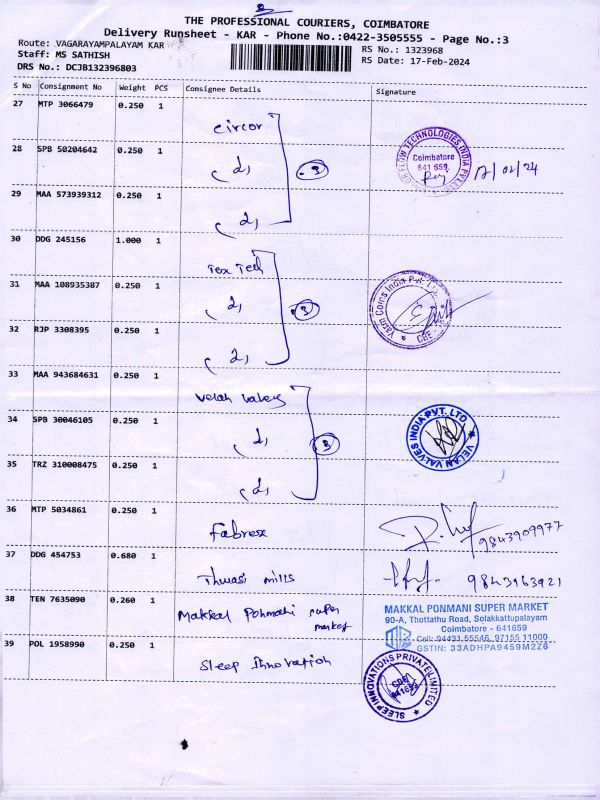 THE PROFESSIONAL COURIERS, COIMBATORE
Delivery Runsheet - KAR - Phone No.:0422-3505555 - Page No.:3
Route: VAGARAYAMPALAYAM KAR
RS No.: 1323968
Staff: MS SATHISH
RS Date: 17-Feb-2024
DRS No.: DCJB132396803
S No Consignment No Weight PCS Consignee Details Signature
27 MTP 3066479 0.250 1 circor
28 SPB 50204642 0.250 1 3
Coimbatore
641 659
17/02/24
29 MAA 573939312 0.250 1
30 DDG 245156 1.000 1 Tex Tech
31 MAA 108935387 0.250 1 3
Yarn Cons India P.
CBE
32 RJP 3308395 0.250 1
33 MAA 943684631 0.250 1 velan valves
34 SPB 30046105 0.250 1 3
VELAN VALVES INDIA PVT. LTD
35 TRZ 310008475 0.250 1
36 MTP 5034861 0.250 1 Fabrex
9843909977
37 DDG 454753 0.680 1 Thuasi mills
9843163921
38 TEN 7635090 0.260 1 Makkal Ponmani super market
MAKKAL PONMANI SUPER MARKET
90-A, Thottathu Road, Solakkattupalayam
Coimbatore - 641659
Cell: 94431 55546, 97155 11000
GSTIN: 33ADHPA9459M2Z6
39 POL 1958990 0.250 1 Sleep Innovation
SLEEP INNOVATIONS PRIVATE LIMITED
CBE
641659